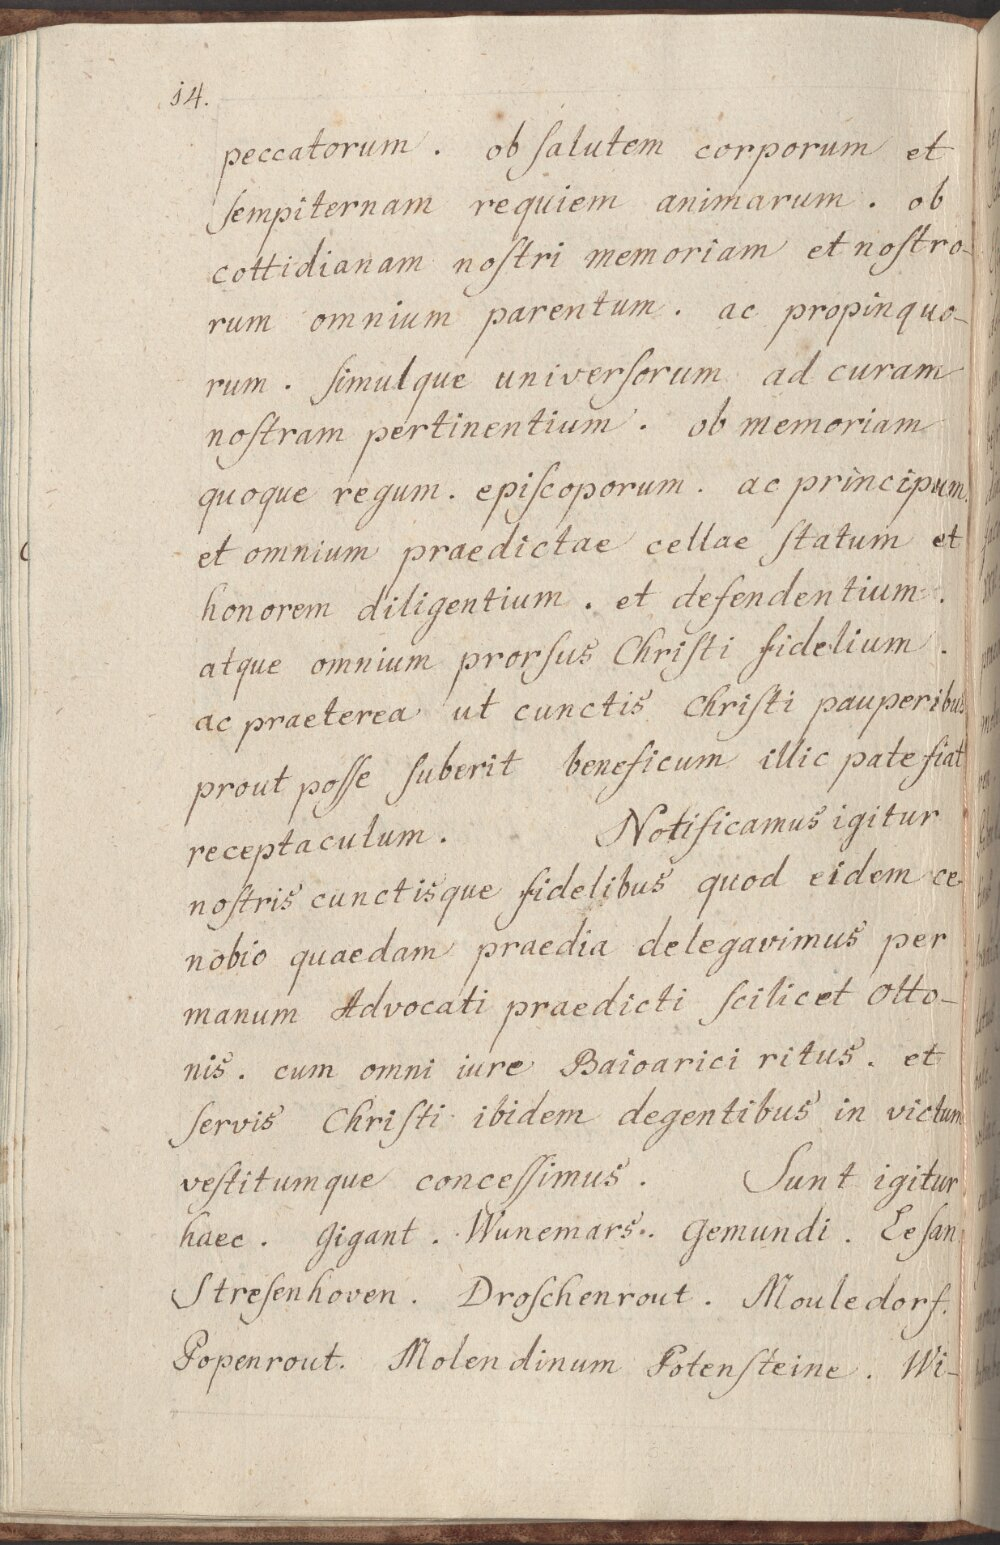 14.
peccatorum . ob ſalutem corporum et
ſempiternam requiem animarum . ob
cottidianam noſtri memoriam et noſtro-
rum omnium parentum . ac propinquo-
rum . ſimulque univerſorum ad curam
noſtram pertinentium . ob memoriam
quoque regum . epiſcoporum . ac principum.
et omnium praedictae cellae ſtatum et
honorem diligentium . et defendentium .
atque omnium prorſus Chriſti fidelium .
ac praeterea ut cunctis Chriſti pauperibus
prout poſſe ſuberit beneficum illic patefiat
receptaculum . Notificamus igitur
noſtris cunctisque fidelibus quod eidem ce-
nobio quaedam praedia delegavimus per
manum Advocati praedicti ſcilicet Otto-
nis . cum omni iure Baioarici ritus . et
ſervis Chriſti ibidem degentibus in victum
veſtitumque conceſſimus . Sunt igitur
haec . Gigant . Wunemars . Gemundi . Leſan
Streſenhoven . Droſchenrout . Mouledorf.
Popenrout . Molendinum Potenſteine . Wi-